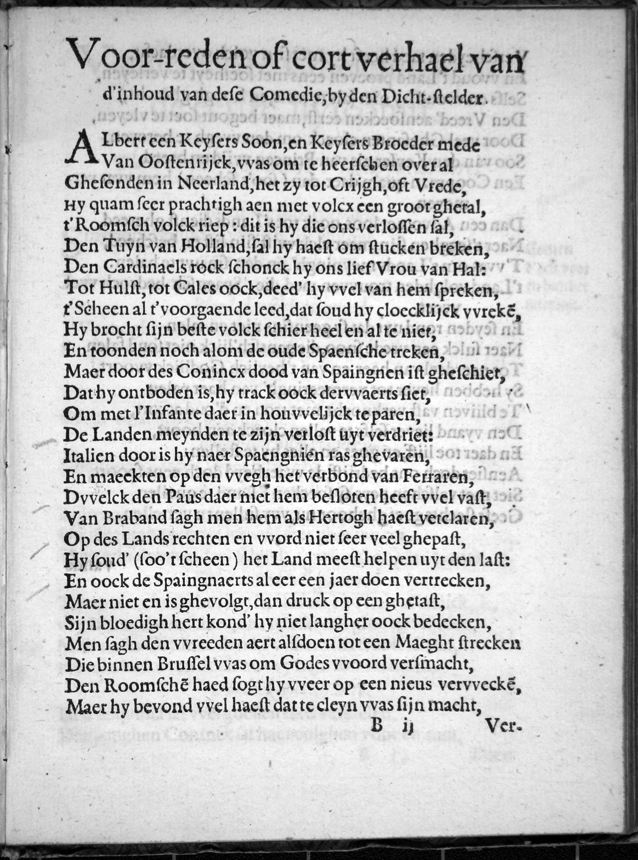 Voor-reden of cort verhael van
d'inhoud van dese Comedie, by den Dicht-stelder.
ALbert een Keysers Soon, en Keysers Broeder mede
Van Oostenrijck, vvas om te heerschen over al
Ghesonden in Neerland, het zy tot Crijgh, oft Vrede,
Hy quam seer prachtigh aen met volcx een groot ghetal,
t'Roomsch volck riep : dit is hy die ons verlossen sal,
Den Tuyn van Holland, sal hy haest om stucken breken,
Den Cardinaels rock schonck hy ons lief Vrou van Hal:
Tot Hulst, tot Cales oock, deed' hy vvel van hem spreken,
t'Scheen al t'voorgaende leed, dat soud hy cloecklijck vvrekẽ,
Hy brocht sijn beste volck schier heel en al te niet,
En toonden noch alom de oude Spaensche treken,
Maer door des Conincx dood van Spaingnen ist gheschiet,
Dat hy ontboden is, hy track oock dervvaerts siet,
Om met l'Infante daer in houvvelijck te paren,
De Landen meynden te zijn verlost uyt verdriet:
Italien door is hy naer Spaengnien ras ghevaren,
En maeckten op den vvegh het verbond van Ferraren,
Dvvelck den Paus daer met hem besloten heeft vvel vast,
Van Braband sagh men hem als Hertogh haest verclaren,
Op des Lands rechten en vvord niet seer veel ghepast,
Hy soud' (soo't scheen) het Land meest helpen uyt den last:
En oock de Spaingnaerts al eer een jaer doen vertrecken,
Maer niet en is ghevolgt, dan druck op een ghetast,
Sijn bloedigh hert kond' hy niet langher oock bedecken,
Men sagh den vvreeden aert alsdoen tot een Maeght strecken
Die binnen Brussel vvas om Godes vvoord versmacht,
Den Roomschẽ haed sogt hy vveer op een nieus vervveckẽ,
Maer hy bevond vvel haest dat te cleyn vvas sijn macht,
B ij Ver-